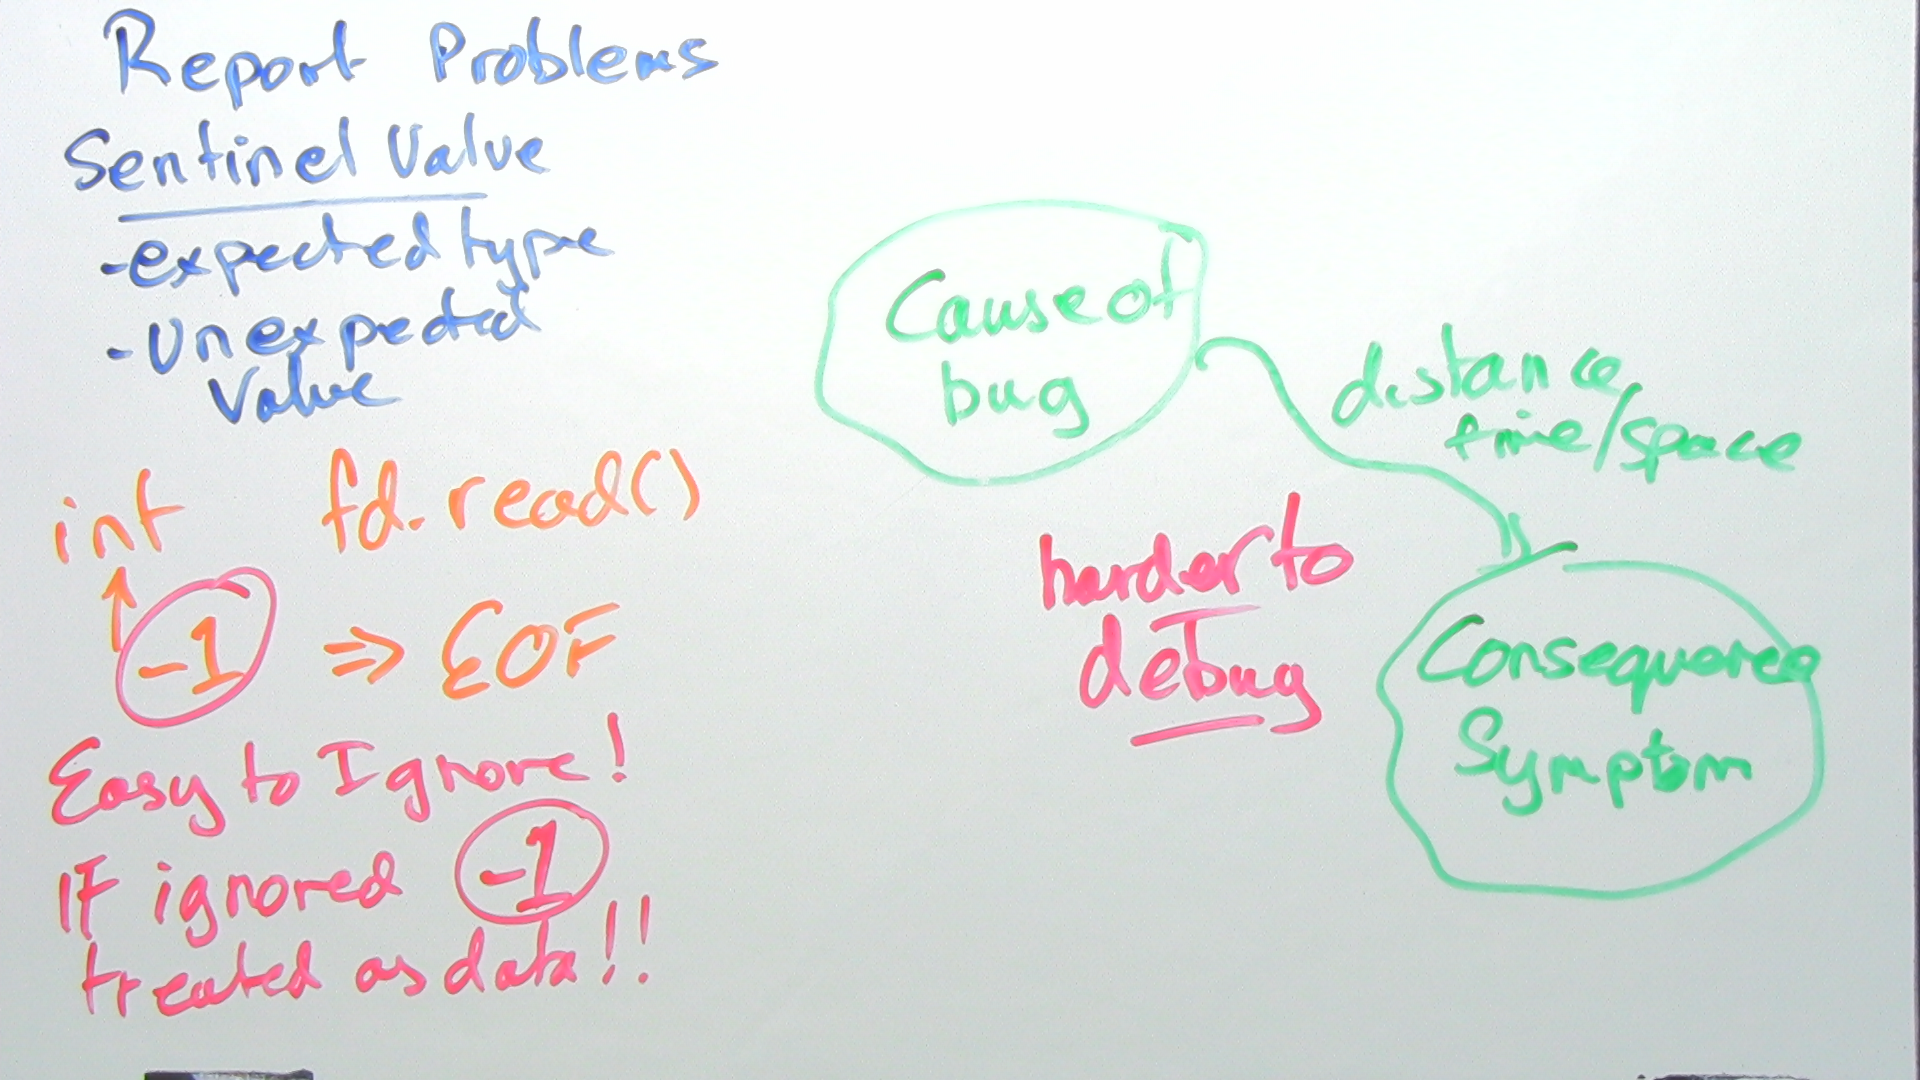 Report Problems
Sentinel Value
- expected type
- Unexpected
Value
int fd.read()
-1 => EOF
Easy to Ignore!
IF ignored -1
treated as data!!
Cause of
bug
distance
time/space
harder to
debug
Consequence
Symptom